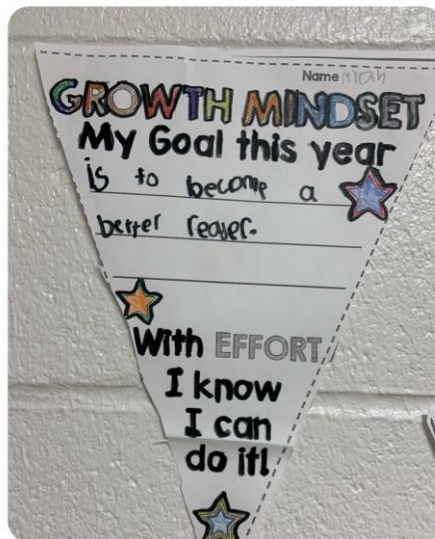 Name
GROWTH MINDSET
My Goal this year
is to become a
better reader.
With EFFORT
I know
I can
do it!